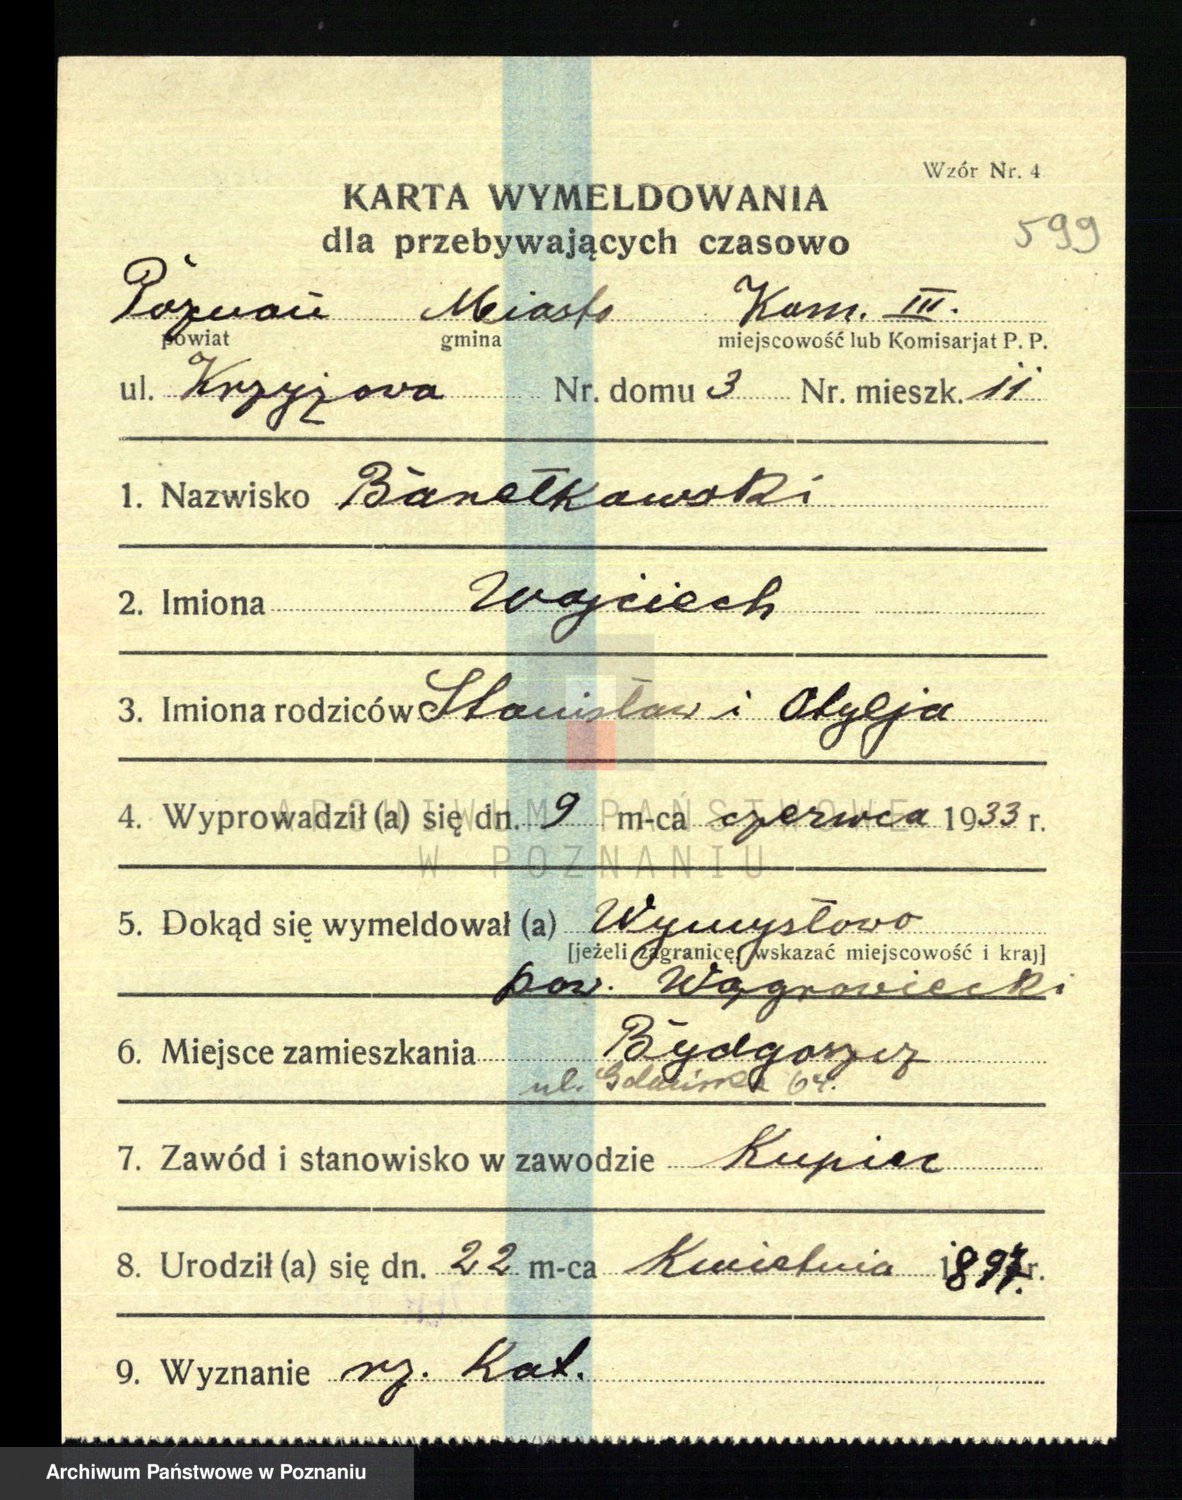 Wzór Nr. 4
KARTA WYMELDOWANIA
dla przebywających czasowo
599
Poznań Miasto Kom. III.
powiat gmina miejscowość lub Komisarjat P. P.
ul. Krzyżowa Nr. domu 3 Nr. mieszk. 11
1. Nazwisko Banetkowski
2. Imiona Wojciech
3. Imiona rodziców Stanisław i Otylja
4. Wyprowadził (a) się dn. 9 m-ca czerwca 1933 r.
ARCHIWUM PAŃSTWOWE
W POZNANIU
5. Dokąd się wymeldował (a) Wymysłowo
[jeżeli zagranicę, wskazać miejscowość i kraj]
pow. Wągrowiecki
6. Miejsce zamieszkania Bydgoszcz
ul. Gdańska 64.
7. Zawód i stanowisko w zawodzie Kupiec
8. Urodził (a) się dn. 22 m-ca Kwietnia 1897. r.
9. Wyznanie rz. Kat.
Archiwum Państwowe w Poznaniu